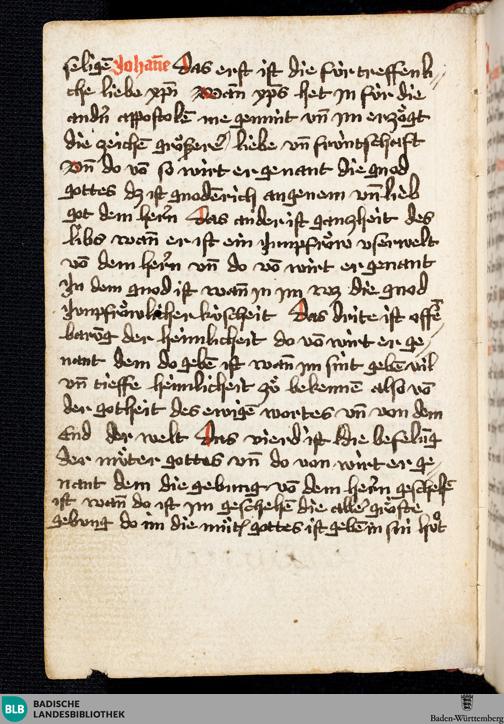 seligē Johāne Das erst ist die fúrtreffenli
che liebe xp̄i wān xp̄s het in fúr die
andn̄ appostolē me gemint vn̄ im erzögt
die zeichē größerer liebe vn̄ frúntschaft
vn̄ do vō so wirt er genant die gnod
gottes dz ist gnodērich angenem vn̄ lieb
got dem herrn̄ Das ander ist gantzheit des
libs wan̄ er ist ein jumpfröw vserwelt
vō dem herrn̄ vn̄ do vō wirt er genant
In dem gnod ist wān in im wz die gnod
Jumpfröwlicher kúscheit Das drite ist offē
barūg der heimlicheit do vō wirt er ge
nant dem do gebē ist wān im sint gebē vil
vn̄ tieffe heimlicheit zů bekennē also vō
der gotheit des ewigē wortes vn̄ von dem
End der welt Das vierd ist die befelūg
der můter gottes vn̄ do von wirt er ge
nant dem die gebung vō dem herrn̄ geschehē
ist wān do ist im geschehē die aller gröste
gebung do im die můt̄ gottes ist gebē in sin hůt
BLB
BADISCHE
LANDESBIBLIOTHEK
Baden-Württemberg